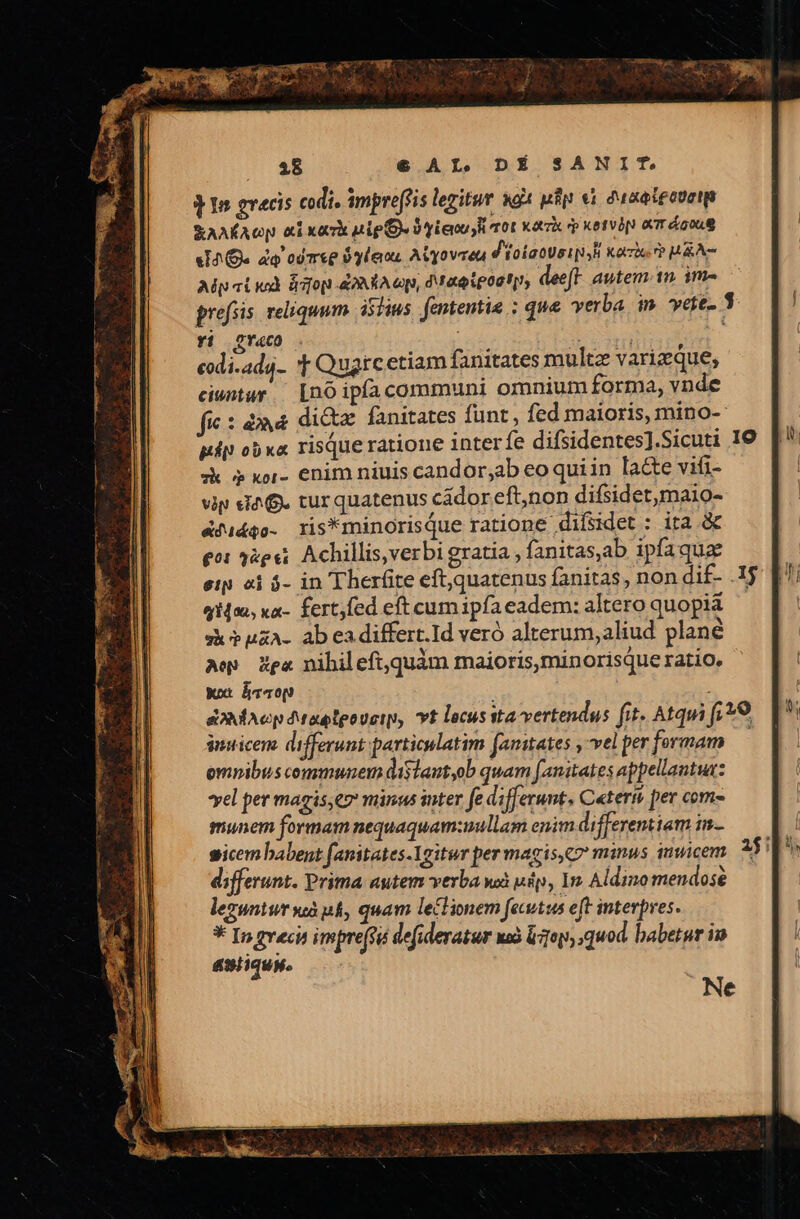 18 GAL. DE SANIT.
† In græcis codi. impreſſis legitur καὶ μὴν εἰ διαφέρουσιν
ἀλλήλων αἱ κατὰ μέρος ὑγίειαι, ἤτοι κατὰ τὸ κοινὸν ἁπάσαις
εἶδος ἀφ' οὗπερ ὑγίειαι λέγονται διοίσουσιν, ἢ κατὰ τὸ μᾶλ-
λόν τί καὶ ἧττον ἀλλήλων, διαφέρουσιν, deeſt autem in im-
preſsis reliquum istius ſententiæ : quæ verba in vete- 5
ri græco
codi.adij- † Quare etiam ſanitates multæ variæque,
ciuntur [nō ipſa communi omnium forma, vnde
ſic : ἀλλὰ dictæ ſanitates ſunt, ſed maioris, mino-
μὴν οὐ κα risque ratione inter ſe diſsidentes]. Sicuti 10
τὰ τὸ κοι- enim niuis candor, ab eo qui in lacte viſi-
νὸν εἶδος tur quatenus cādor eſt, non diſsidet, maio-
διάφο- ris*minorisque ratione diſsidet : ita &
ροι γάρεἰ Achillis, verbi gratia, ſanitas, ab ipſa quæ
σιν αἱ ὑ- in Therſite eſt, quatenus ſanitas, non dif- 15
γίειαι, κα- fert, ſed eſt cum ipſa eadem: altero quopiā
τὰ τὸ μᾶλ- ab ea differt. Id verò alterum, aliud planè
λον ἄρα nihil eſt, quàm maioris, minorisque ratio.
καὶ ἧττον
ἀλλήλων διαφέρουσιν, vt locus ita vertendus ſit. Atqui ſi 20
inuicem differunt particulatim ſanitates , vel per formam
omnibus communem distant, ob quam ſanitates appellantur:
vel per magis, & minus inter ſe differunt. Cæterū per com-
munem formam nequaquam: nullam enim differentiam in-
uicem habent ſanitates. Igitur per magis, & minus inuicem 25
differunt. Prima autem verba καὶ μὴν, In Aldino mendosè
leguntur καὶ μὴ, quam lectionem ſecutus eſt interpres.
* In græcis impreſſis deſideratur καὶ ἧττον, quod habetur in
antiquis.
Ne